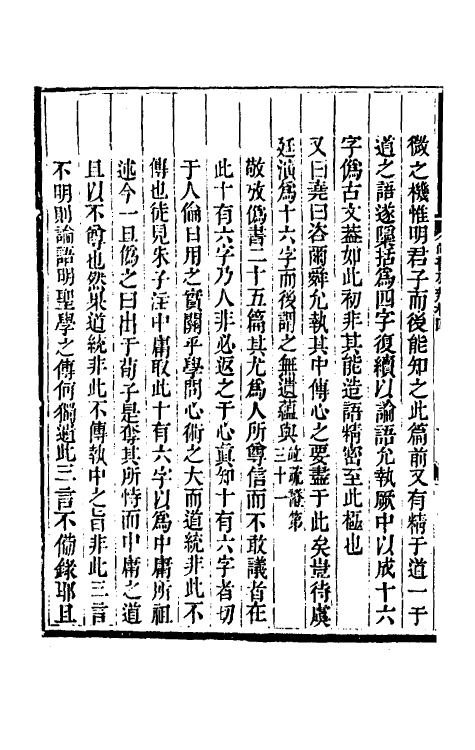 微之機惟明君子而後能知之此篇前又有精于道一于
道之語遂隱括為四字復續以論語允執厥中以成十六
字偽古文蓋如此初非其能造語精密至此極也
又曰堯曰咨爾舜允執其中傳心之要盡于此矣豈待虞
廷演為十六字而後謂之無遺蘊與此疏證第三十一
敬攷偽書二十五篇其尤為人所尊信而不敢議者在
此十有六字乃人非必返之于心真知十有六字者切
于人倫日用之實關乎學問心術之大而道統非此不
傳也徒見朱子注中庸取此十有六字以為中庸所祖
述今一旦偽之曰出于荀子是奪其所恃而中庸之道
且以不尊也然果道統非此不傳執中之旨非此三言
不明則論語明聖學之傳何獨遺此三言不備錄耶且